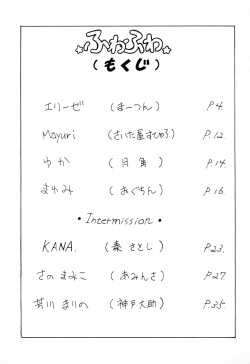 ふわふわ
(もくじ)
エリーゼ (まーつん) P.4.
Mayuri (さいた屋すひゅろ) P.12.
ゆか (月角) P.14.
まゆみ (あぐちん) P.16.
• Intermission •
KANA. (秦さとし) P.23.
さの まみこ (あみんさ) P.27
まりの (神戸大助) P.35.